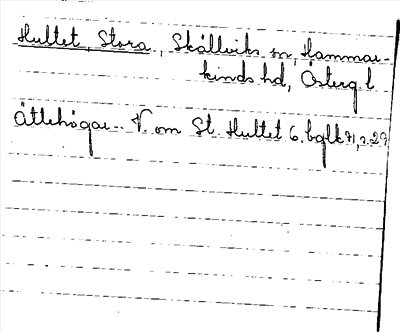 Hultet, Stora, Skällviks sn, Hammar-
kinds hd, Österg. l.
Ättehögar.. V. om St. Hultet 6. bglb 71, s. 29